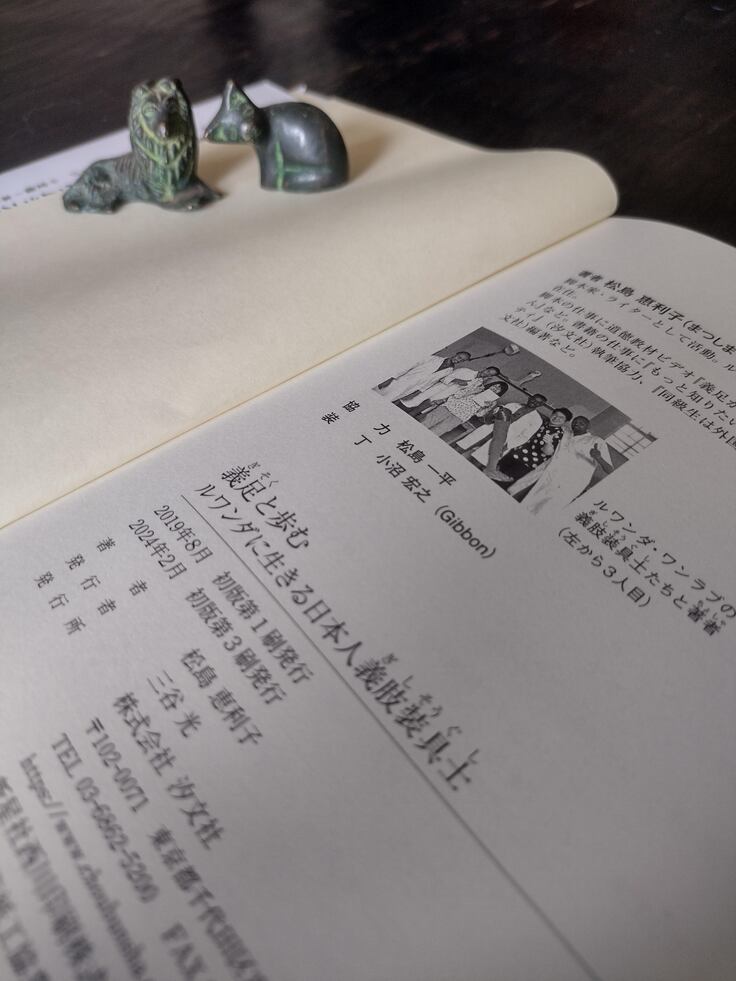 著者 松島 恵利子(まつしま
脚本家・ライターとして活動。
在住。
脚本の仕事に道徳教材ビデオ『義足
ん』など。書籍の仕事に『もっと知りたい
ティ』(汐文社)執筆協力、『同級生は外国
文社)編著など。
ルワンダ・ワンラブの
義肢装具士たちと著者
ぎしそうぐし ちょしゃ
(左から3人目)
協力 松島 一平
装丁 小沼 宏之(Gibbon)
ぎそく
義足と歩む
ルワンダに生きる日本人義肢装具士
ぎしそうぐし
2019年8月 初版第1刷発行
2024年2月 初版第3刷発行
著者 松島 恵利子
発行者 三谷 光
発行所 株式会社 汐文社
〒102-0071 東京都千代田区
TEL 03-6862-5200 FAX
https://www.choubunsha.c
新星社西川印刷株